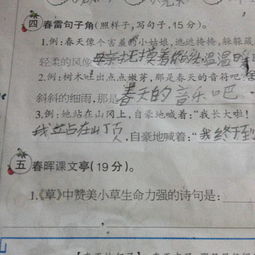 四 春雷句子角(照样子,写句子,15分)。
1.例:春天像个害羞的小姑娘,遮遮掩掩,躲躲藏
轻柔的风像
2.例:树木吐出点点嫩芽,那是春天的音符吧
斜斜的细雨,那是春天的音乐吧。
3.例:她站在山冈上,自豪地喊着:“我长大啦!
我站在山顶,自豪地喊着:“我终于到
五 春晖课文亭(19分)。
1.《草》中赞美小草生命力强的诗句是: